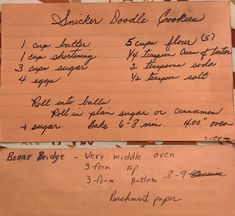 Snicker Doodle Cookies
1 cup butter 5 cups flour (5)
1 cup shortening 1¼ teaspoon Cream of tarter
3 cups sugar 2 teaspoons soda
4 eggs ½ teaspoon salt
Roll into balls.
Roll in plain sugar or cinnamon
+ sugar. Bake 6-8 min. 400° oven
Bonar Bridge - Very middle oven
3-from Top
3-from Bottom 8-9
Parchment paper